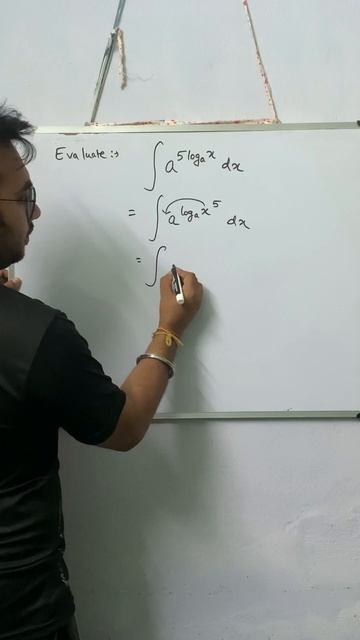 Evaluate :→ ∫ a^(5 logₐ x) dx
= ∫ a^(logₐ x⁵) dx
= ∫